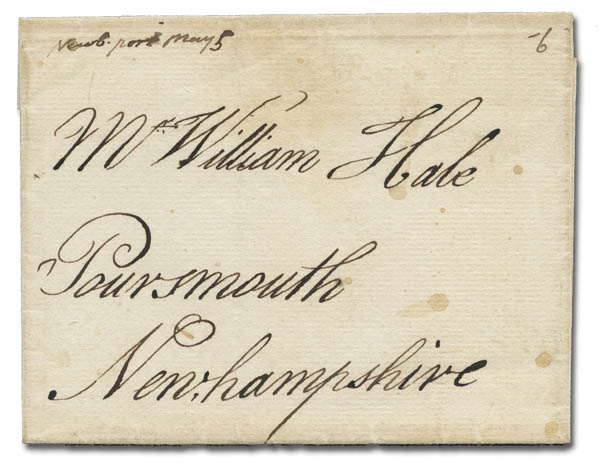 Newb. port May 5
6
Mr. William Hale
Poursmouth
New.hampshire